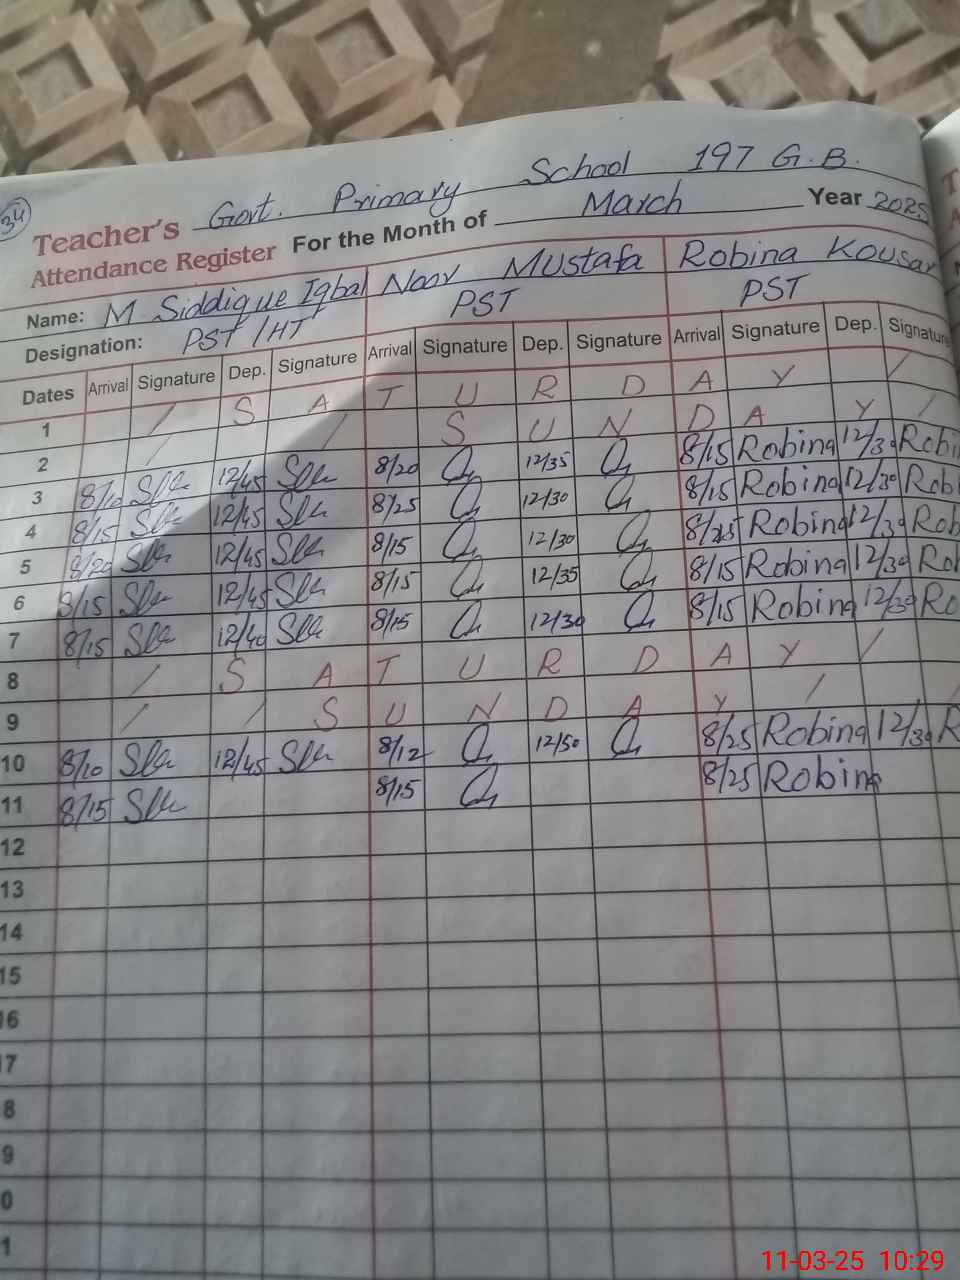 34
Govt. Primary School 197 G.B.
Teacher's
Attendance Register For the Month of March Year 2025
Name: M Siddique Iqbal Noor Mustafa Robina Kousar
Designation: PST/HT PST PST
Dates Arrival Signature Dep. Signature Arrival Signature Dep. Signature Arrival Signature Dep. Signature
1 / S A T U R D A Y /
2 / / S U N D A Y /
3 8/10 12/45 8/20 12/35 8/15 Robina 12/30 Robi
4 8/15 12/45 8/25 12/30 8/15 Robina 12/30 Rob
5 8/20 12/45 8/15 12/30 8/25 Robina 12/30 Rob
6 8/15 12/45 8/15 12/35 8/15 Robina 12/30 Ro
7 8/15 12/40 8/15 12/30 8/15 Robina 12/30 Ro
8 / S A T U R D A Y /
9 / / S U N D A Y /
10 8/10 12/45 8/12 12/50 8/25 Robina 12/30 R
11 8/15 8/15 8/25 Robina
12
13
14
15
16
7
8
9
0
1
11-03-25 10:29